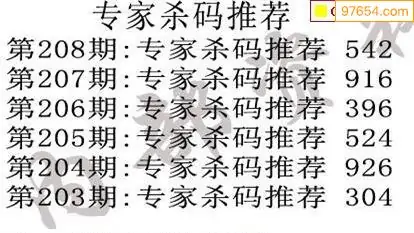 专家杀码推荐
97654.com
第208期:专家杀码推荐 542
第207期:专家杀码推荐 916
第206期:专家杀码推荐 396
第205期:专家杀码推荐 524
第204期:专家杀码推荐 926
第203期:专家杀码推荐 304
内部资料